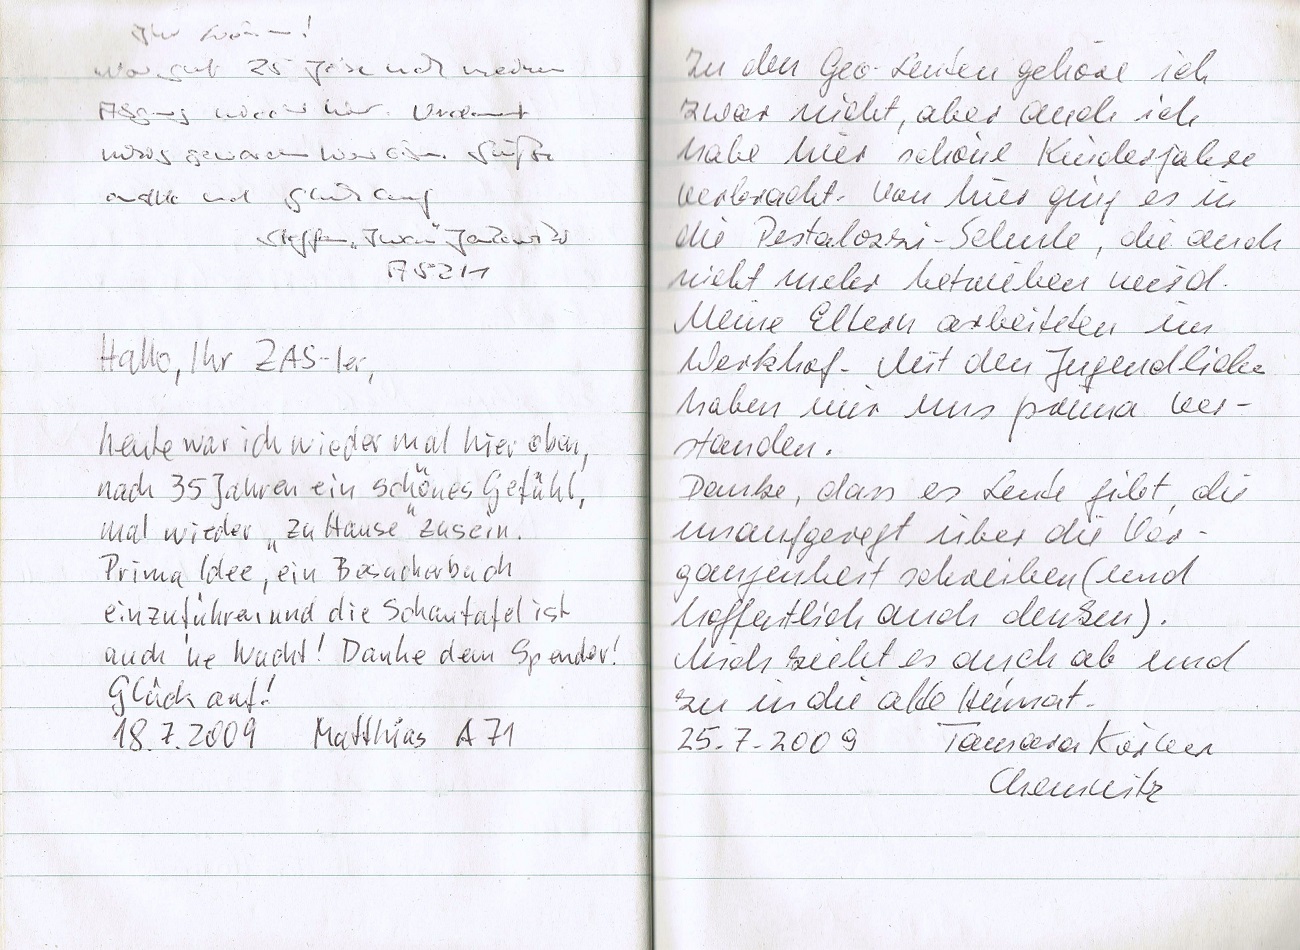 War gut 25 Jahre nach meinem
wieder hier.
geworden
und Glück auf
Steffen
AS211
Hallo, Ihr ZAS-ler,
heute war ich wieder mal hier oben,
nach 35 Jahren ein schönes Gefühl,
mal wieder „zu Hause“ zusein.
Prima Idee, ein Besucherbuch
einzuführen und die Schautafel ist
auch 'ne Wucht! Danke dem Spender!
Glück auf!
18.7.2009 Matthias A71
Zu den Geo-Leuten gehöre ich
zwar nicht, aber auch ich
habe hier schöne Kinderjahre
verbracht. Von hier ging es in
die Pestalozzi-Schule, die auch
nicht mehr betrieben wird.
Meine Eltern arbeiteten im
Werkhof. Mit den Jugendliche
haben wir uns prima ver-
standen.
Danke, dass es Leute gibt, die
unaufgeregt über die Ver-
gangenheit schreiben (und
hoffentlich auch denken).
Mich zieht es auch ab und
zu in die alte Heimat.
25.7.2009 Tamara
Chemnitz